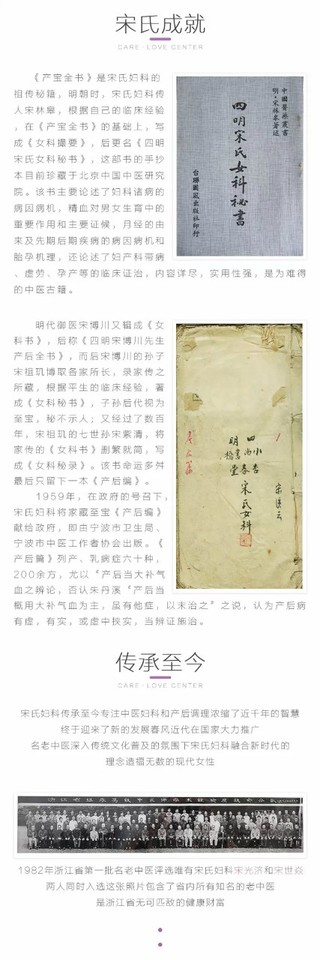 宋氏成就
CARE·LOVE CENTER
《产宝全书》是宋氏妇科的
祖传秘籍，明朝时，宋氏妇科传
人宋林皋，根据自己的临床经验
，在《产宝全书》的基础上，写
成《女科撮要》，后更名《四明
宋氏女科秘书》，这部书的手抄
本目前珍藏于北京中国中医研究
院。该书主要论述了妇科诸病的
病因病机，精血对男女生育中的
重要作用和主要证候，月经的由
来及先期后期疾病的病因病机和
胎孕机理，还论述了妇产科带病
、虚劳、孕产等的临床证治，内容详尽，实用性强，是为难得
的中医古籍。
中國醫藥叢書
明·宋林皋著述
四明宋氏女科秘書
台聯國風出版社印行
明代御医宋博川又辑成《女
科书》，后称《四明宋博川先生
产后全书》，而后宋博川的孙子
宋祖玑博取各家所长，录家传之
所藏，根据平生的临床经验，著
成《女科秘书》，子孙后代视为
至宝，秘不示人；又经过了数百
年，宋祖玑的七世孙宋紫清，将
家传的《女科书》删繁就简，写
成《女科秘录》。该书命运多舛
最后只留下一本《产后编》。
1959年，在政府的号召下，
宋氏妇科将家藏至宝《产后编》
献给政府，即由宁波市卫生局、
宁波市中医工作者协会出版。《
产后篇》列产、乳病症六十种，
200余方，尤以“产后当大补气
血之辨论，否认朱丹溪“产后当
概用大补气血为主，虽有他症，以末治之”之说，认为产后病
有虚，有实，或虚中挟实，当辨证施治。
宋氏女科
传承至今
CARE·LOVE CENTER
宋氏妇科传承至今专注中医妇科和产后调理浓缩了近千年的智慧
终于迎来了新的发展春风近代在国家大力推广
名老中医深入传统文化普及的氛围下宋氏妇科融合新时代的
理念造福无数的现代女性
1982年浙江省第一批名老中医评选唯有宋氏妇科宋光济和宋世焱
两人同时入选这张照片包含了省内所有知名的老中医
是浙江省无可匹敌的健康财富